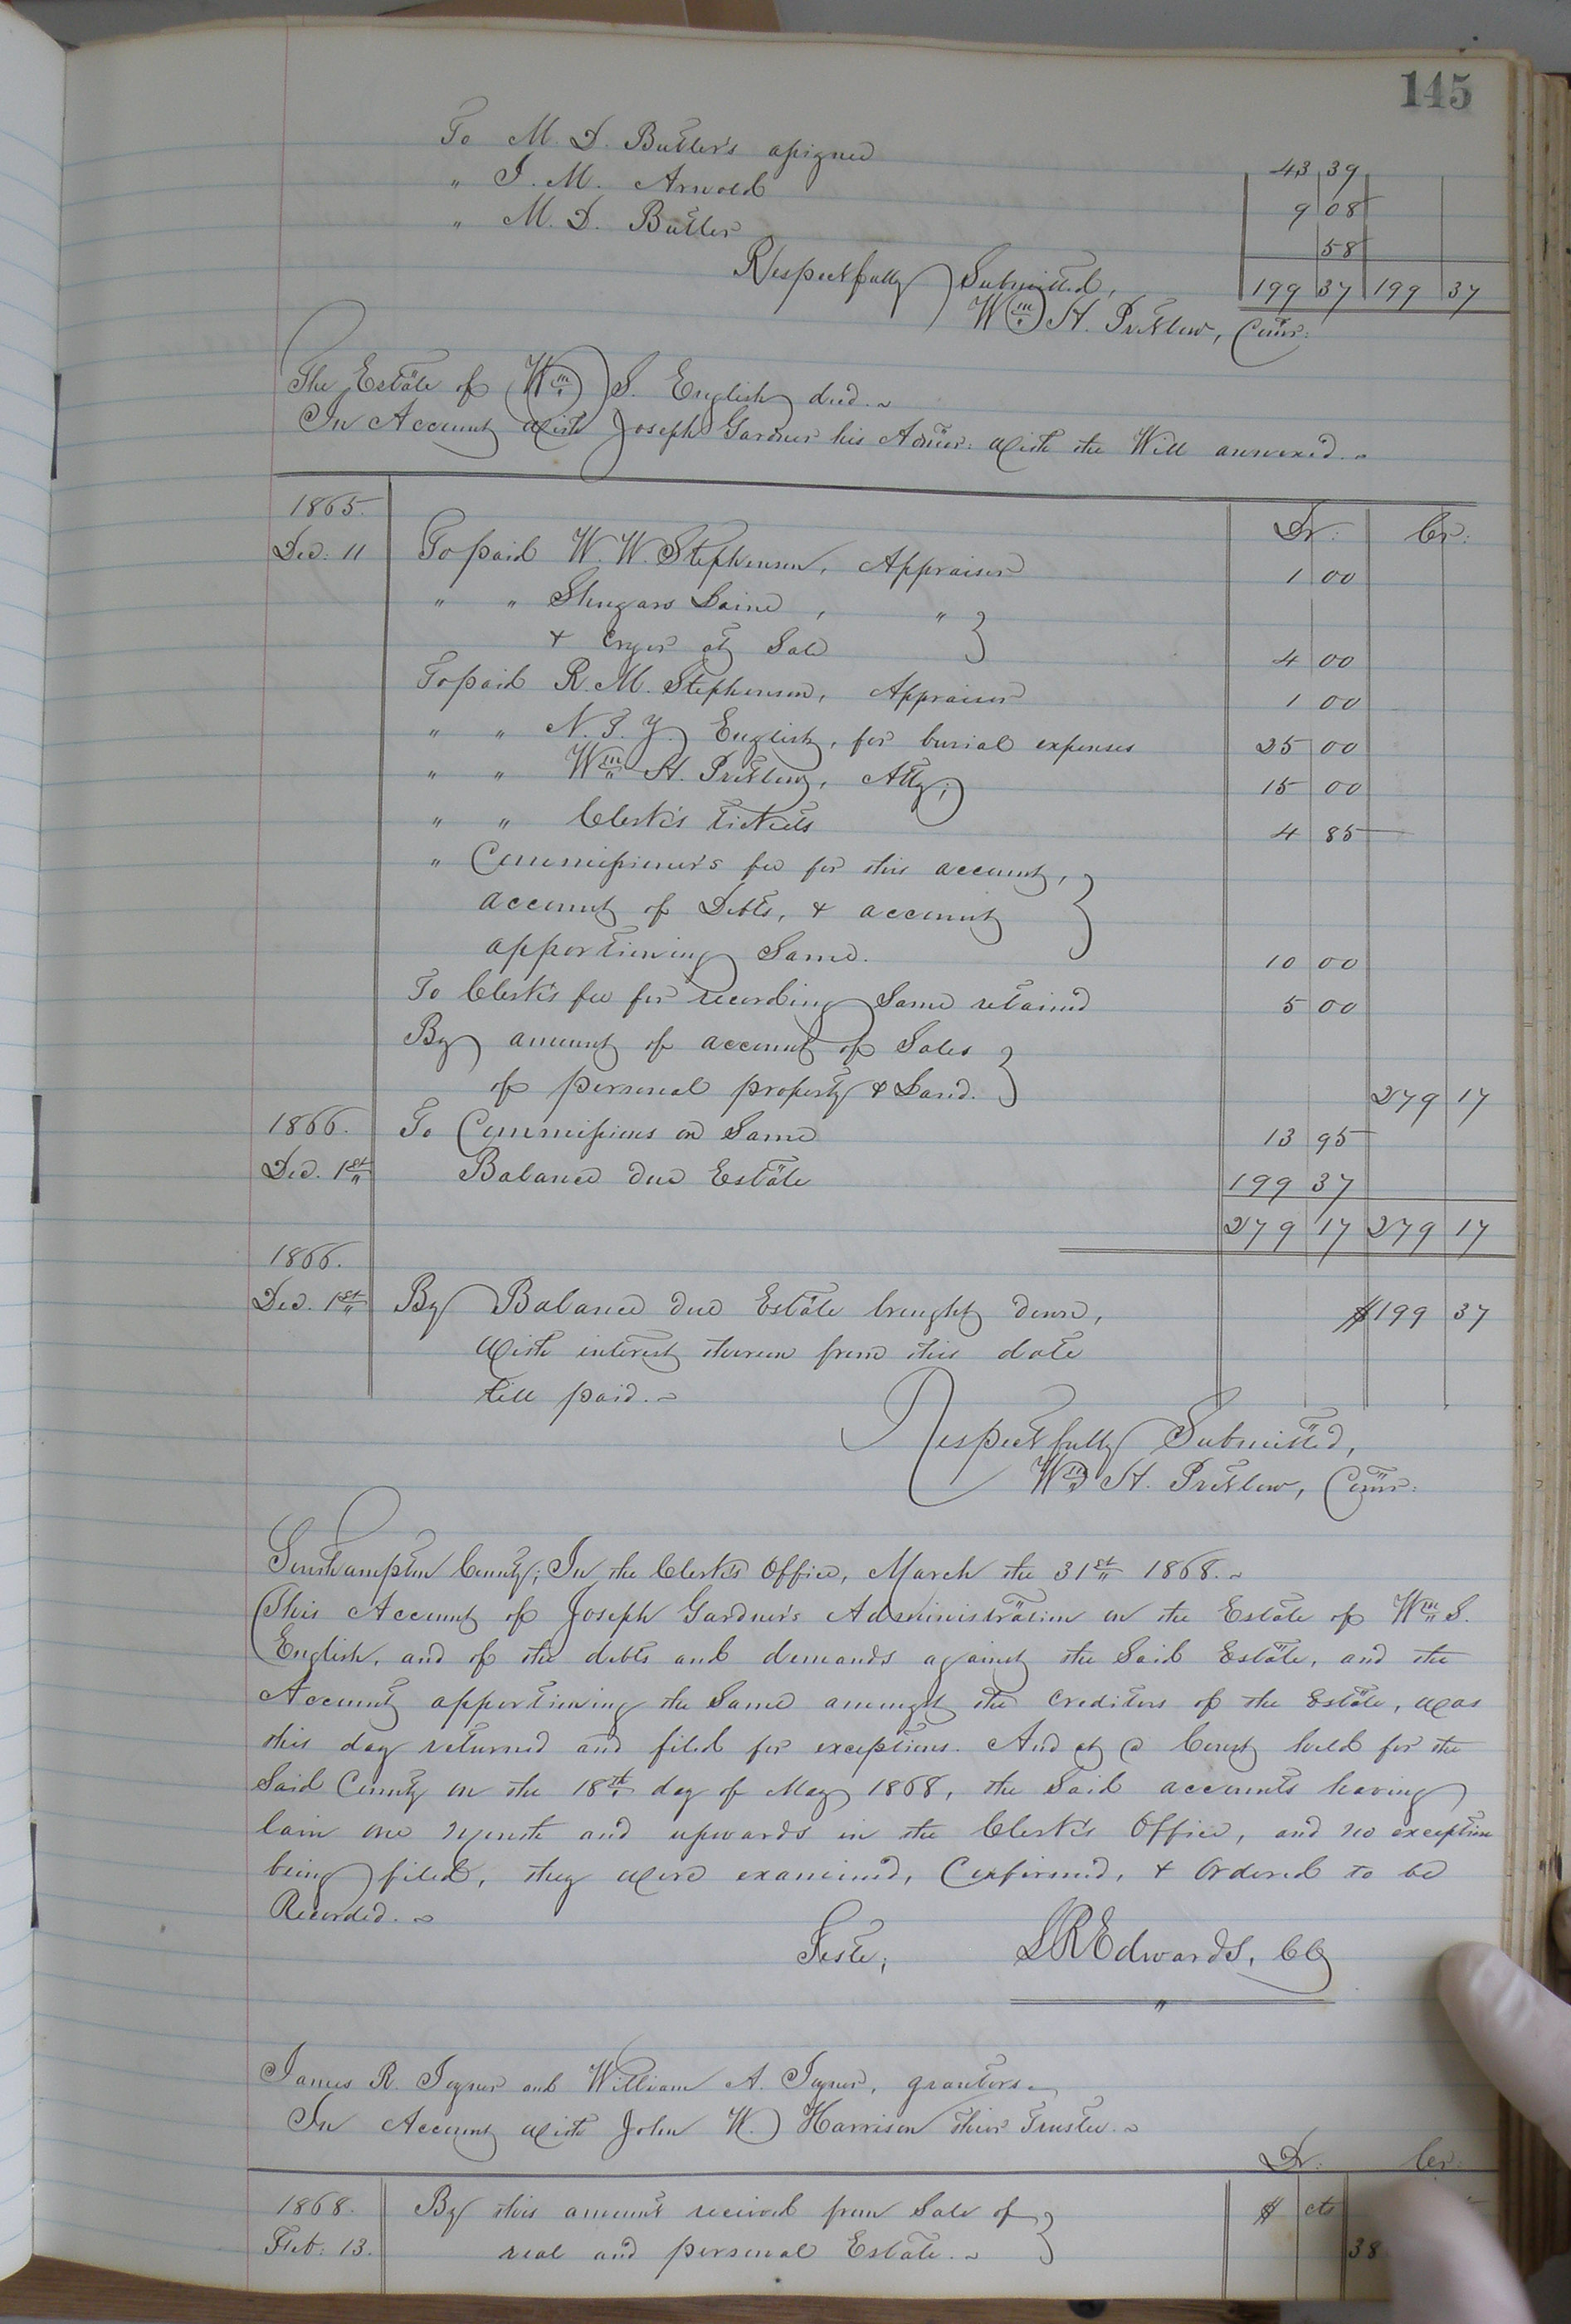 145
To M. D. Butler's assignee 43 39
" J. M. Arnold 9 08
" M. D. Butler 58
199 37 199 37
Respectfully Submitted,
Wm. H. Pretlow, Comr:
The Estate of Wm. S. English decd.
In Account with Joseph Gardner his Admr: with the Will annexed.
1865. Dr: Cr:
Dec: 11 To paid W. W. Stephenson, Appraiser 1 00
" " Laine, "
& Cryer at Sale 4 00
To paid R. M. Stephenson, Appraiser 1 00
" " N. T. Y. English, for burial expenses 25 00
" " Wm H. Pretlow, Atty; 15 00
" " Clerk's tickets 4 85
" Commissioner's fee for this account,
account of Debts, & account
apportioning Same. 10 00
To Clerk's fee for recording Same retained 5 00
By amount of account of Sales
of personal property & Land. 279 17
1866. To Commissions on Same 13 95
Dec. 1st Balance due Estate 199 37
279 17 279 17
1866.
Dec. 1st By Balance due Estate brought down, $199 37
with interest thereon from this date
till paid.
Respectfully Submitted,
Wm H. Pretlow, Comr:
Southampton County; In the Clerk's Office, March the 31st 1868.
This Account of Joseph Gardner's Administration on the Estate of Wm S.
English, and of the debts and demands against the Said Estate, and the
Account apportioning the Same amongst the Creditors of the Estate, was
this day returned and filed for exceptions. And at a Court held for the
Said County on the 18th day of May 1868, the Said accounts having
lain one month and upwards in the Clerk's Office, and no exception
being filed, they were examined, Confirmed, & Ordered to be
Recorded.
Teste; L R Edwards, CC
James R. Joyner and William A. Joyner, grantors
In Account with John W. Harrison their Trustee.
Dr: Cr:
1868. By this amount received from Sale of $ cts
Feb: 13. real and personal Estate. 38